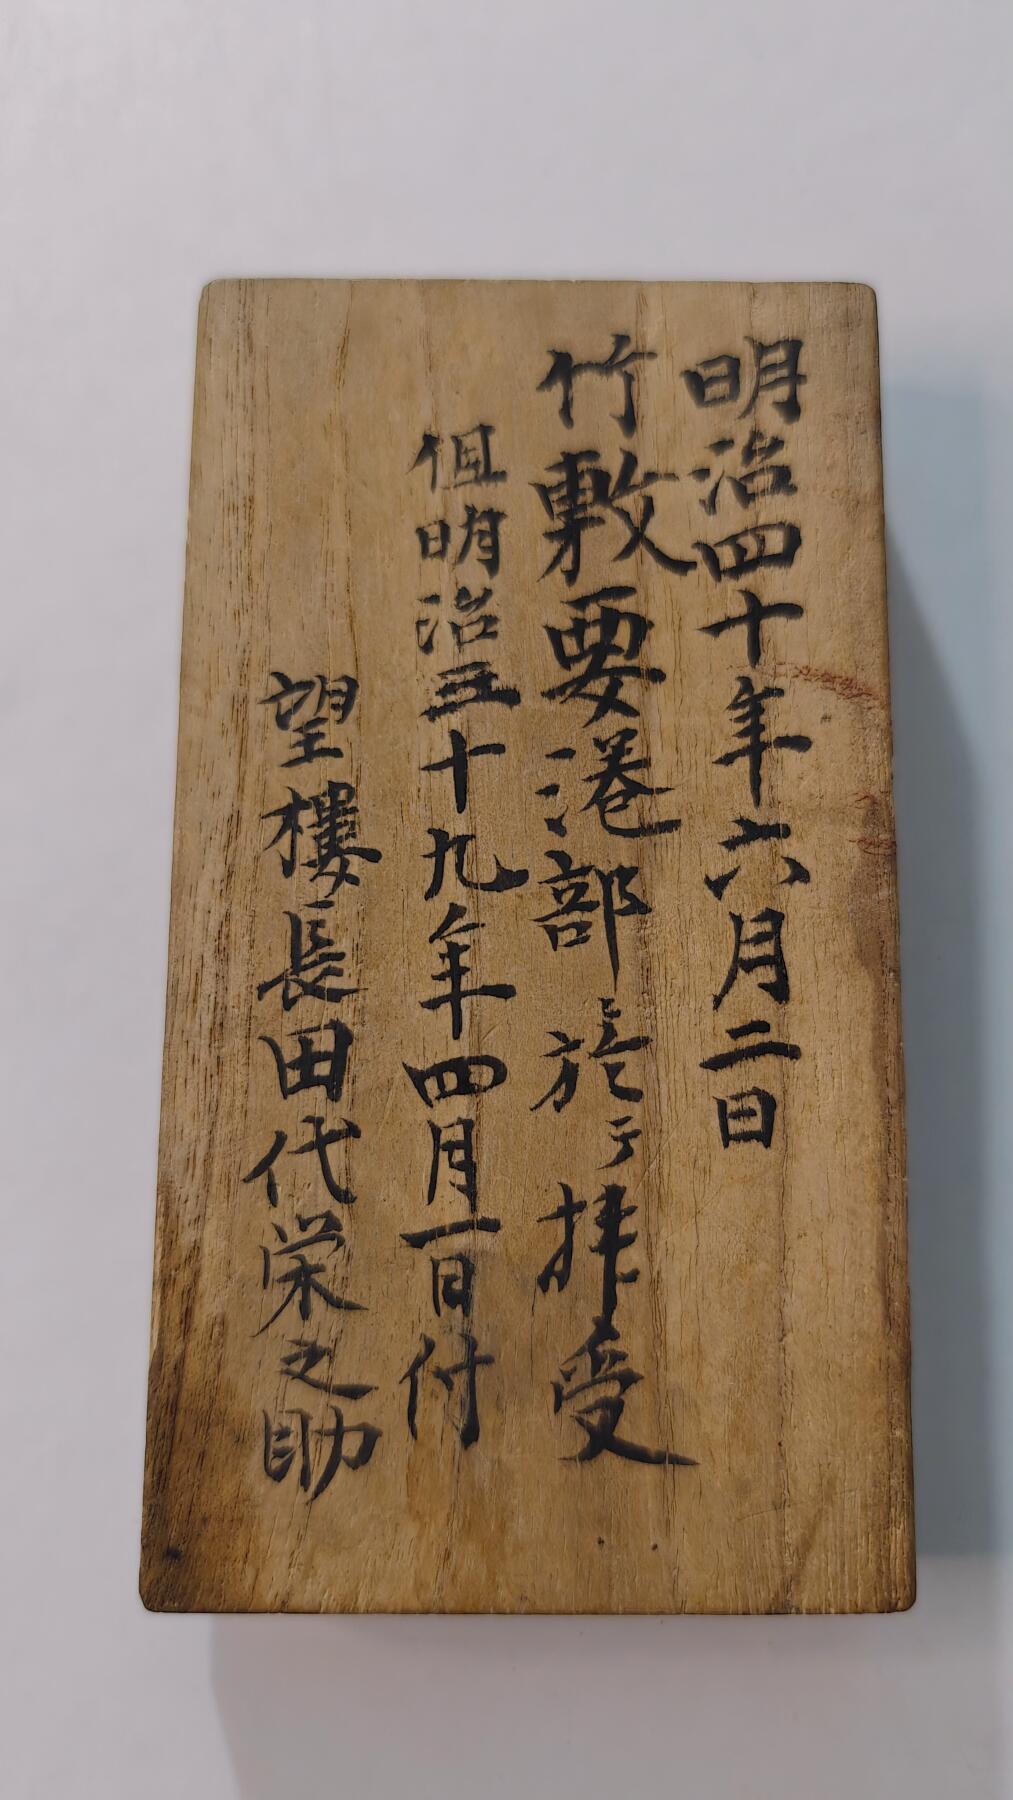 明治四十年六月二日
竹敷要港部ニ於テ拝受
但明治三十九年四月一日付
望樓長田代栄之助